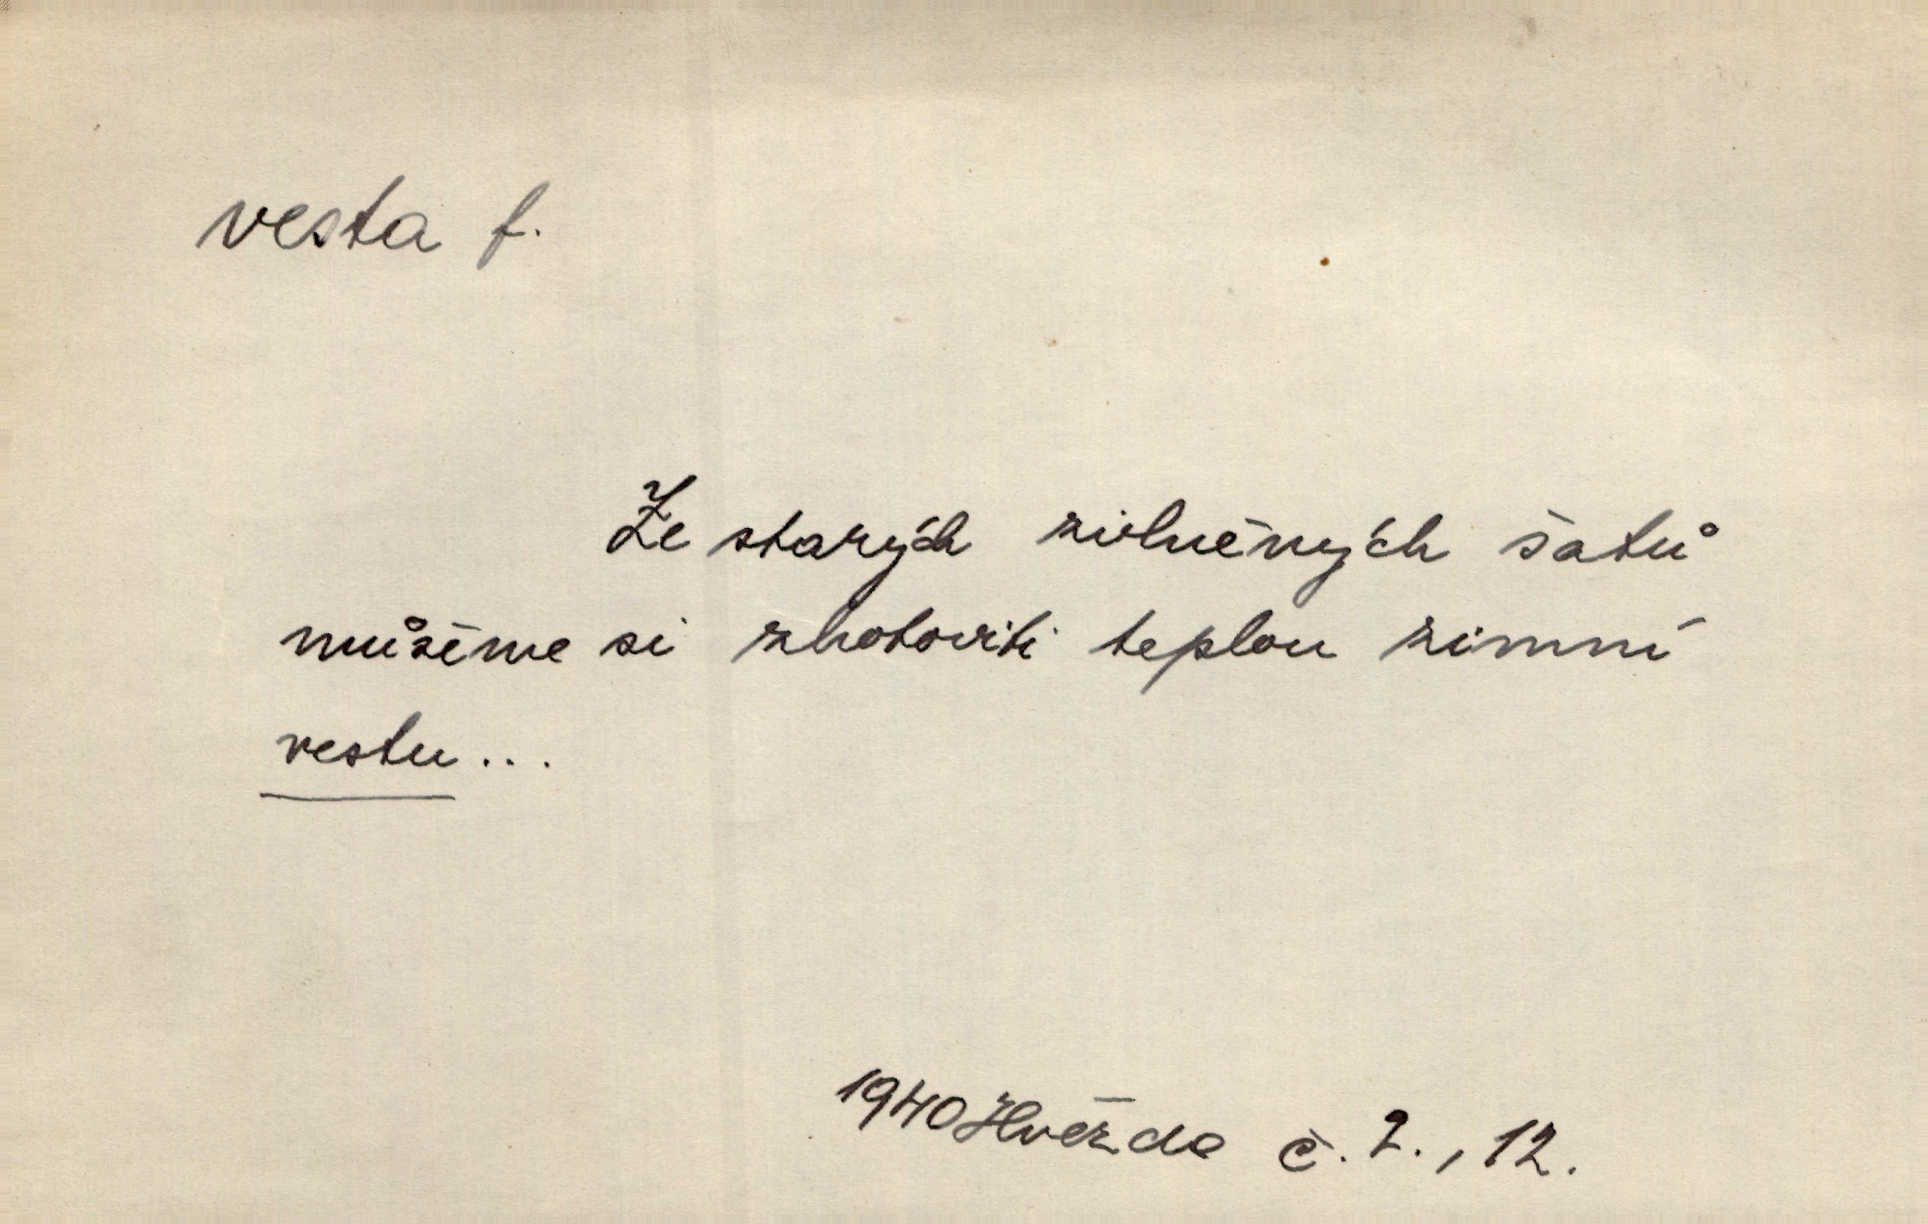 vesta f.
Ze starých vlněných šatů
můžeme si zhotoviti teplou zimní
vestu...
1940 Hvězda č. 2., 12.